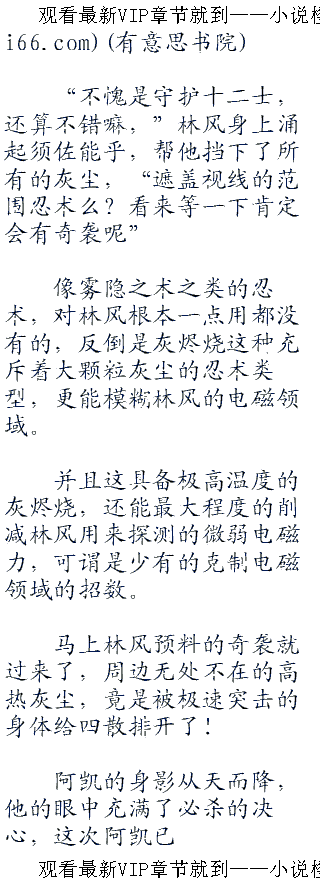 观看最新VIP章节就到——小说
i66.com)(有意思书院)
“不愧是守护十二士，
还算不错嘛，”林风身上涌
起须佐能乎，帮他挡下了所
有的灰尘，“遮盖视线的范
围忍术么？看来等一下肯定
会有奇袭呢”
像雾隐之术之类的忍
术，对林风根本一点用都没
有的，反倒是灰烬烧这种充
斥着大颗粒灰尘的忍术类
型，更能模糊林风的电磁领
域。
并且这具备极高温度的
灰烬烧，还能最大程度的削
减林风用来探测的微弱电磁
力，可谓是少有的克制电磁
领域的招数。
马上林风预料的奇袭就
过来了，周边无处不在的高
热灰尘，竟是被极速突击的
身体给四散排开了！
阿凯的身影从天而降，
他的眼中充满了必杀的决
心，这次阿凯已
观看最新VIP章节就到——小说